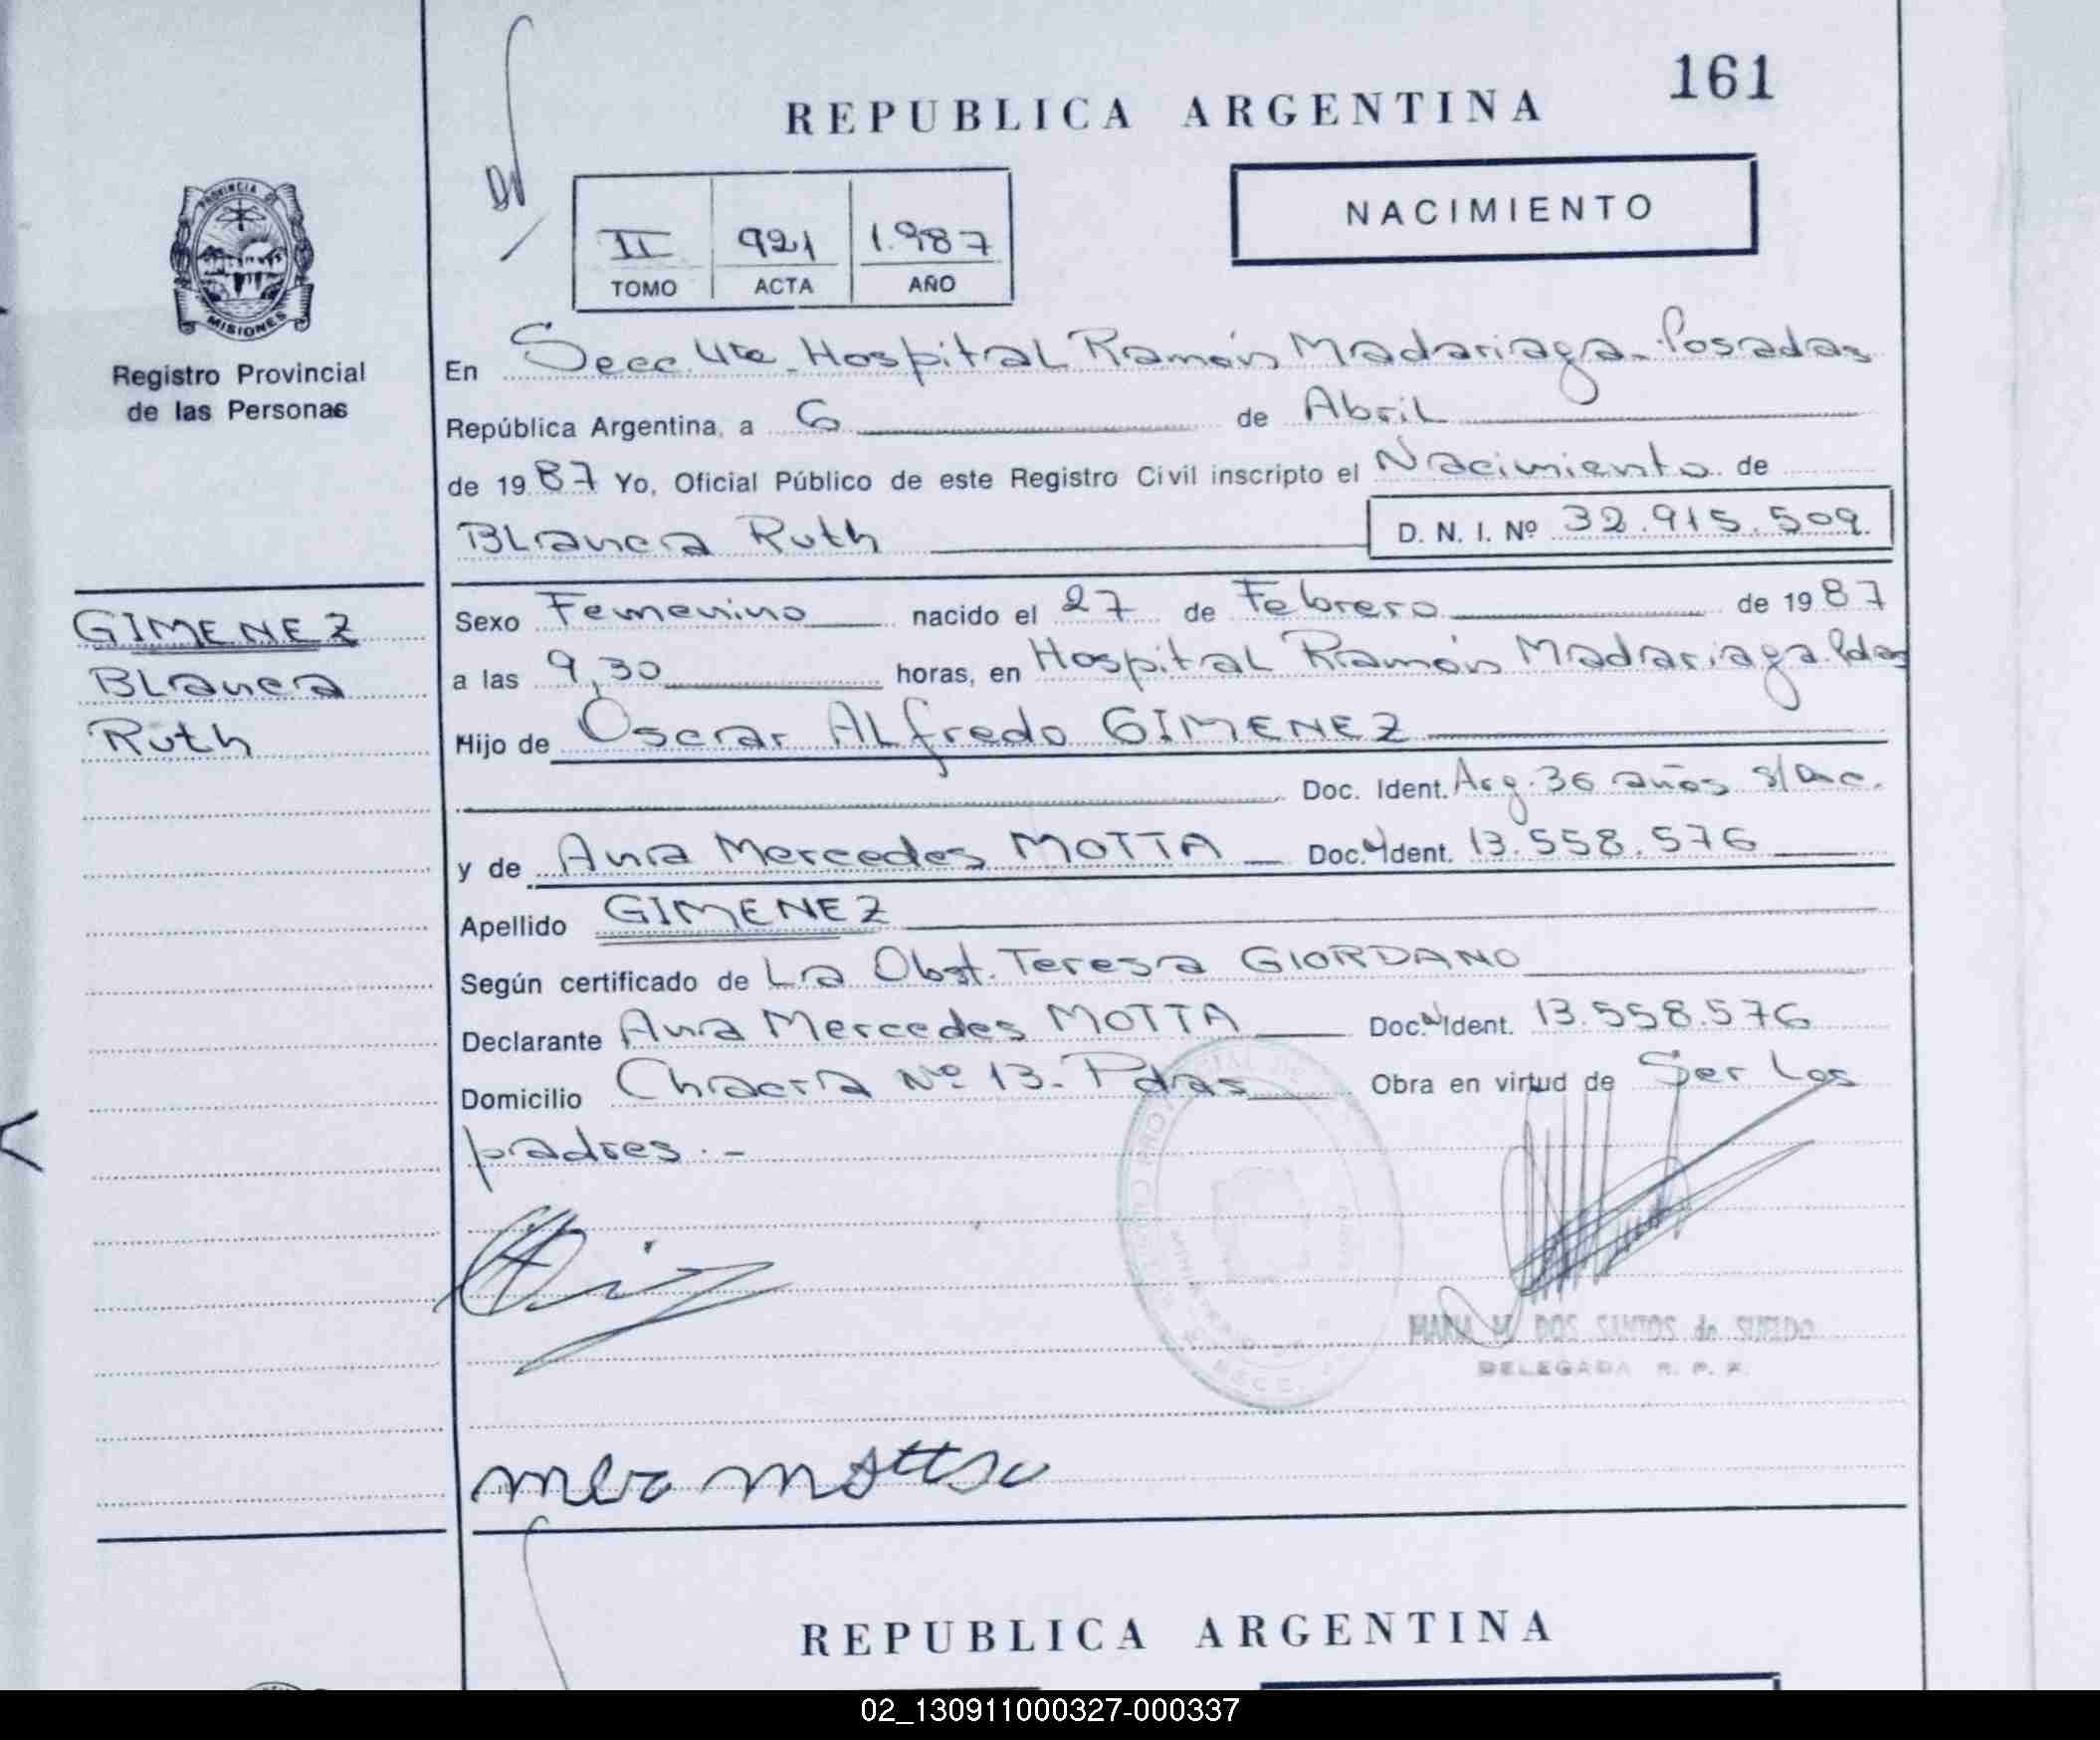 161
REPUBLICA ARGENTINA
NACIMIENTO
II 921 1.987
TOMO ACTA AÑO
PROVINCIA DE
MISIONES
Registro Provincial
de las Personas
En Secc. 4ta. Hospital Ramón Madariaga. Posadas
República Argentina, a 6 de Abril
de 1987 Yo, Oficial Público de este Registro Civil inscripto el Nacimiento de
Blanca Ruth D. N. I. Nº 32.915.509.
GIMENEZ
Blanca
Ruth
Sexo Femenino nacido el 27 de Febrero de 1987
a las 9,30 horas, en Hospital Ramón Madariaga. Pdas
Hijo de Oscar Alfredo GIMENEZ
Doc. Ident. Arg. 36 años s/doc.
y de Ana Mercedes MOTTA Doc. Ident. 13.558.576
Apellido GIMENEZ
Según certificado de La Obst. Teresa GIORDANO
Declarante Ana Mercedes MOTTA Doc. Ident. 13.558.576
Domicilio Chacra Nº 13. Pdas Obra en virtud de Ser los
padres. -
MARIA M. DOS SANTOS de SUELDO
DELEGADA R. P. P.
REPUBLICA ARGENTINA
02_130911000327-000337